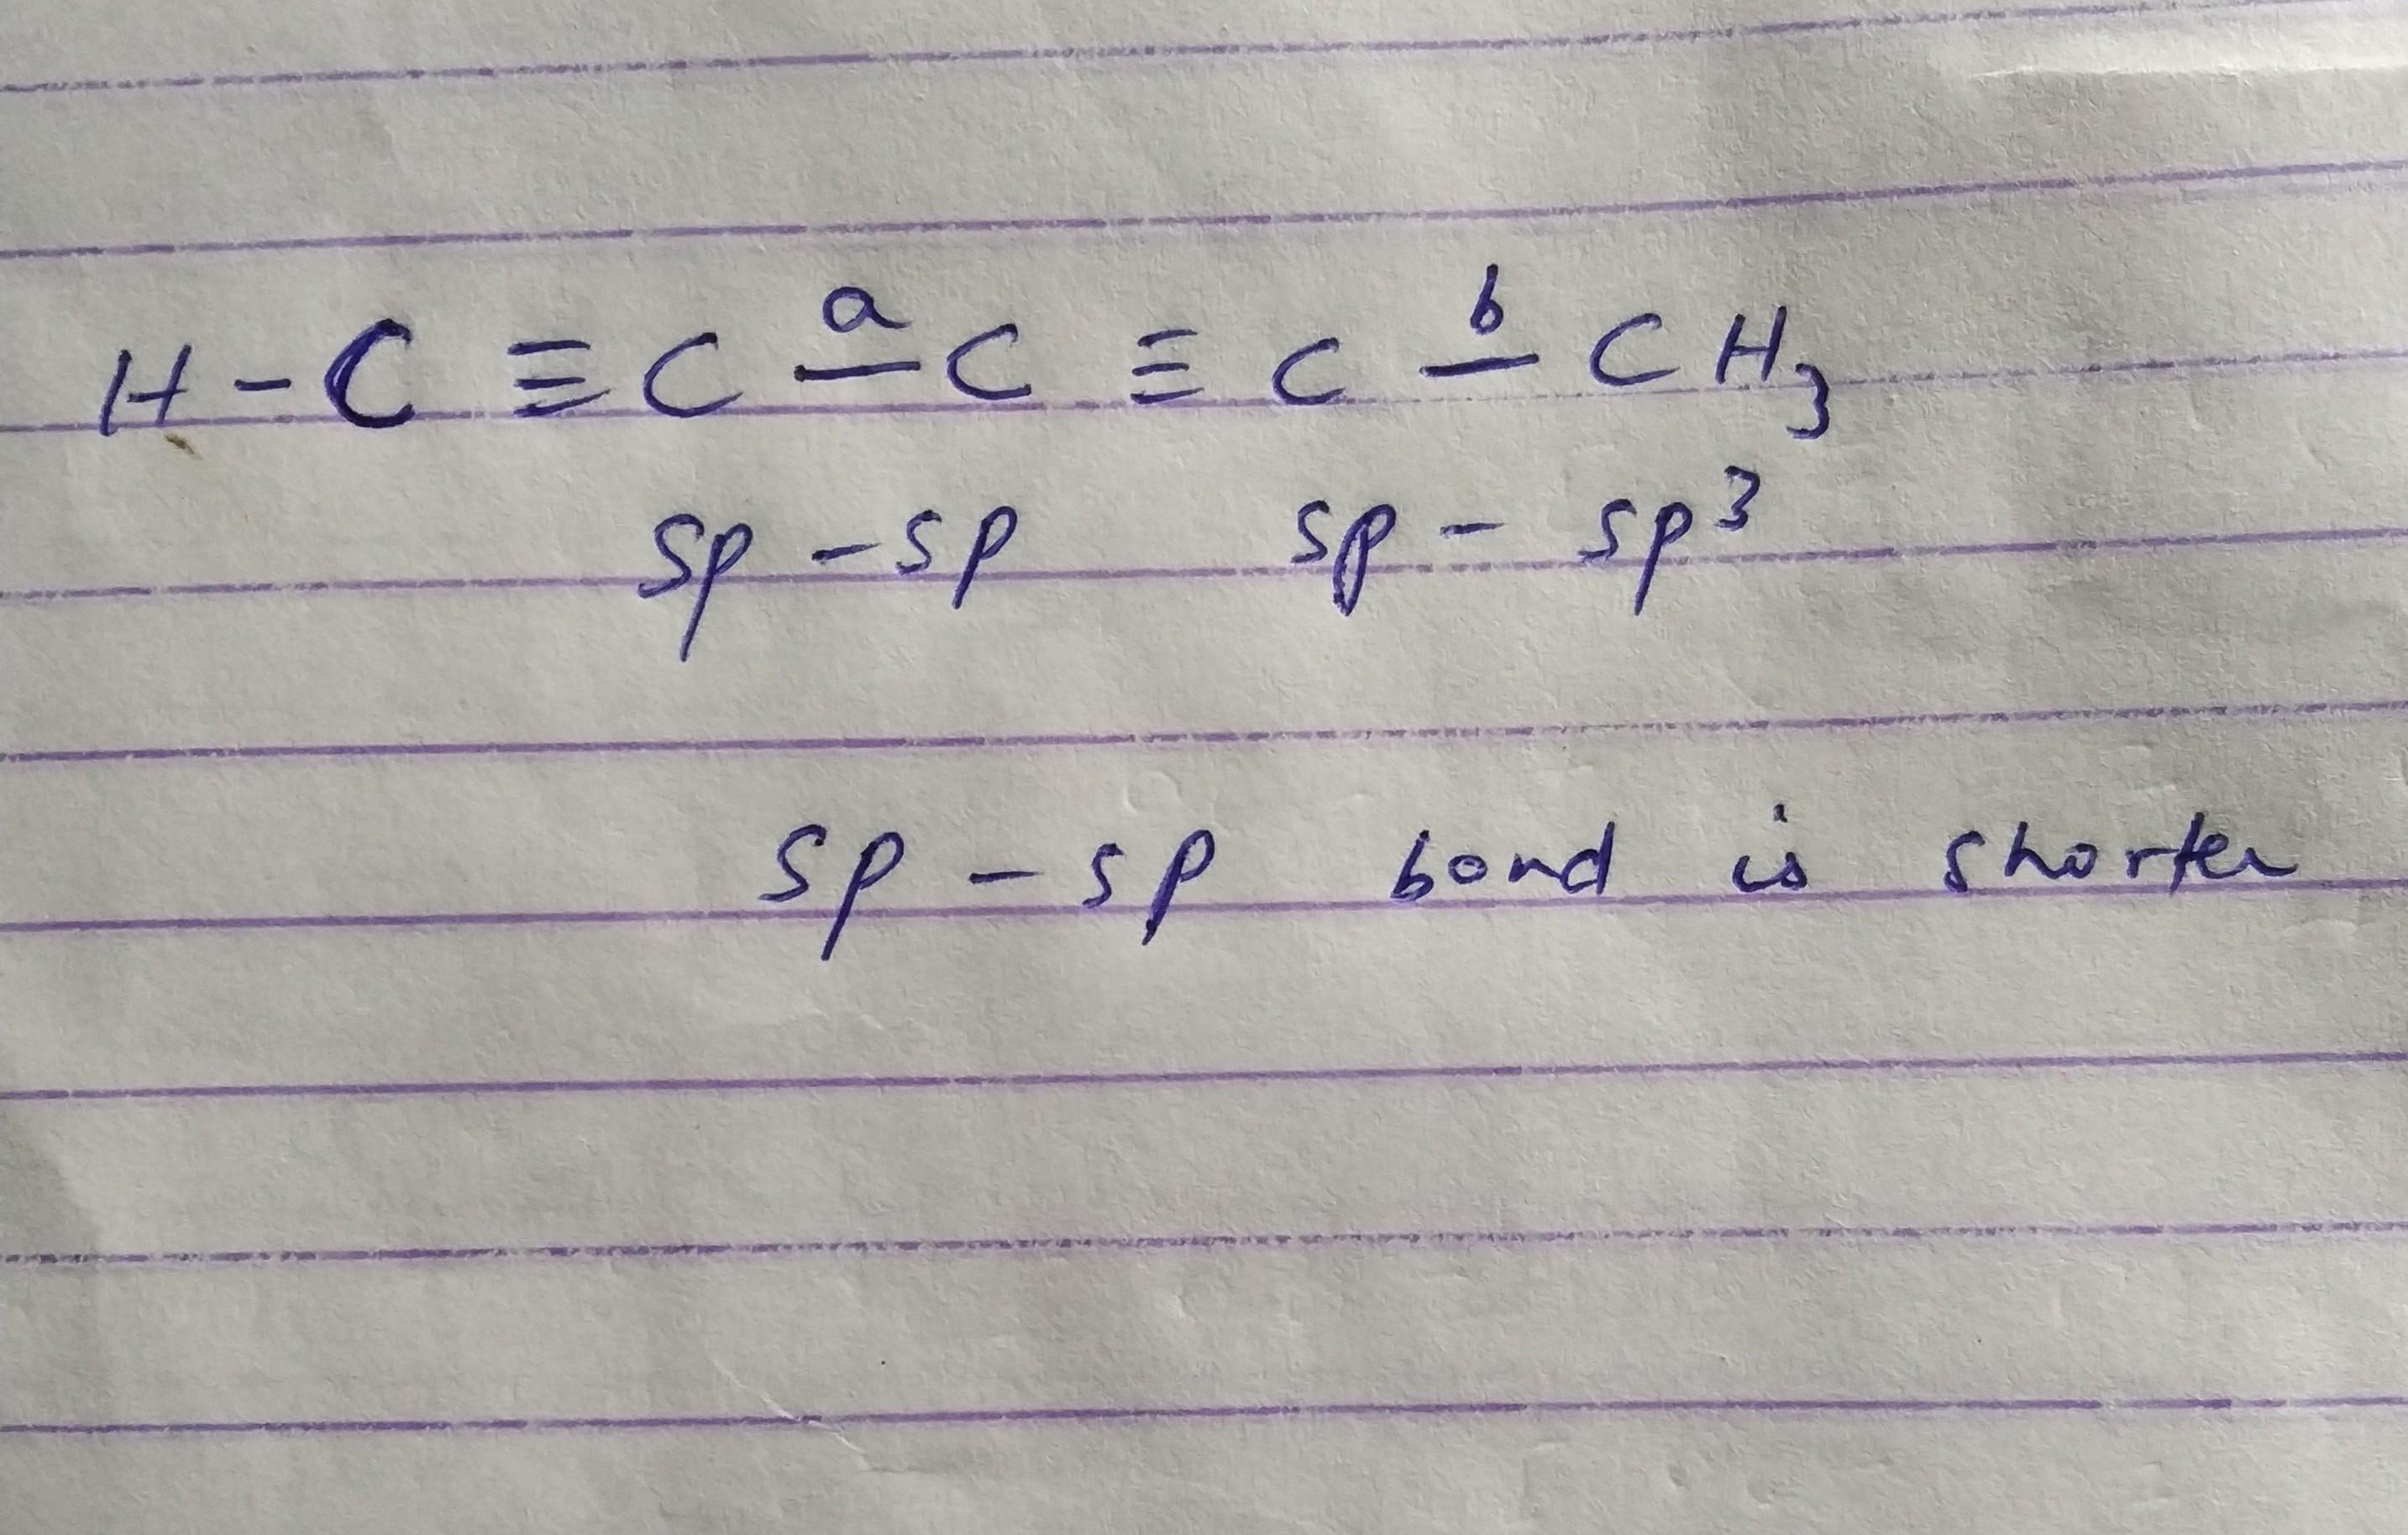 a b
H - C ≡ C — C ≡ C — CH₃
sp - sp sp - sp³
sp - sp bond is shorter